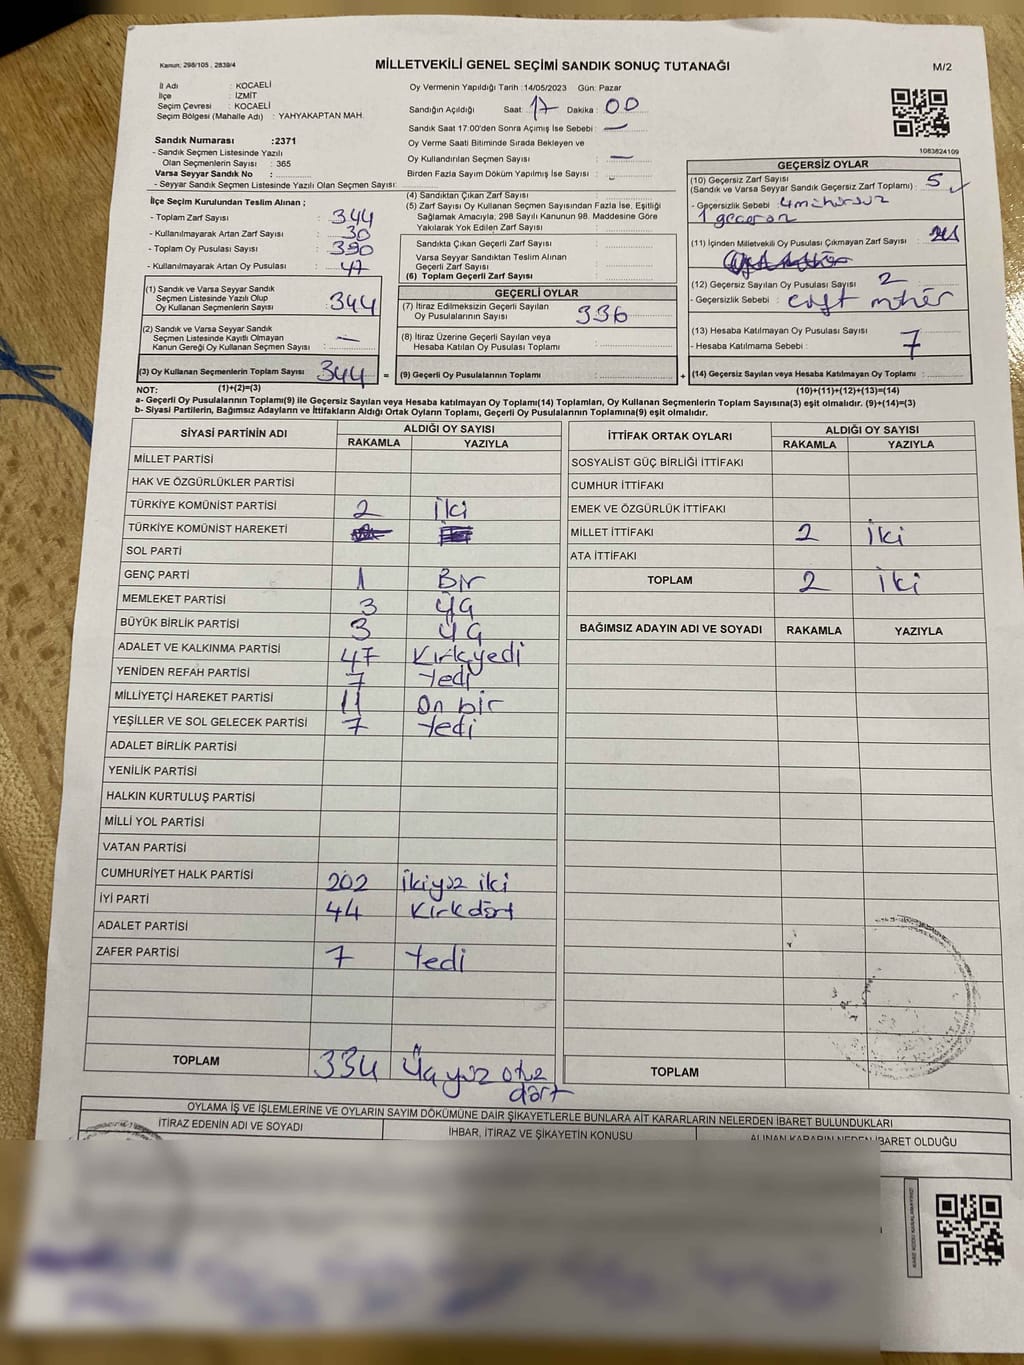 Kanun: 298/105 , 2839/4
MİLLETVEKİLİ GENEL SEÇİMİ SANDIK SONUÇ TUTANAĞI
M/2
İl Adı : KOCAELİ
İlçe : İZMİT
Seçim Çevresi : KOCAELİ
Seçim Bölgesi (Mahalle Adı) : YAHYAKAPTAN MAH.
Sandık Numarası :2371
- Sandık Seçmen Listesinde Yazılı
Olan Seçmenlerin Sayısı : 365
Varsa Seyyar Sandık No :
- Seyyar Sandık Seçmen Listesinde Yazılı Olan Seçmen Sayısı:
Oy Vermenin Yapıldığı Tarih :14/05/2023 Gün: Pazar
Sandığın Açıldığı Saat: 17 Dakika : 00
Sandık Saat 17:00'den Sonra Açımış İse Sebebi : —
Oy Verme Saati Bitiminde Sırada Bekleyen ve
Oy Kullandırılan Seçmen Sayısı : —
Birden Fazla Sayım Döküm Yapılmış İse Sayısı :
1083824109
İlçe Seçim Kurulundan Teslim Alınan ;
- Toplam Zarf Sayısı : 344
- Kullanılmayarak Artan Zarf Sayısı : 30
- Toplam Oy Pusulası Sayısı : 390
- Kullanılmayarak Artan Oy Pusulası : 47
(1) Sandık ve Varsa Seyyar Sandık
Seçmen Listesinde Yazılı Olup
Oy Kullanan Seçmenlerin Sayısı : 344
(2) Sandık ve Varsa Seyyar Sandık
Seçmen Listesinde Kayıtlı Olmayan
Kanun Gereği Oy Kullanan Seçmen Sayısı : —
(3) Oy Kullanan Seçmenlerin Toplam Sayısı : 344 =
(4) Sandıktan Çıkan Zarf Sayısı :
(5) Zarf Sayısı Oy Kullanan Seçmen Sayısından Fazla İse, Eşitliği
Sağlamak Amacıyla, 298 Sayılı Kanunun 98. Maddesine Göre
Yakılarak Yok Edilen Zarf Sayısı :
Sandıkta Çıkan Geçerli Zarf Sayısı :
Varsa Seyyar Sandıktan Teslim Alınan
Geçerli Zarf Sayısı :
(6) Toplam Geçerli Zarf Sayısı :
GEÇERLİ OYLAR
(7) İtiraz Edilmeksizin Geçerli Sayılan
Oy Pusulalarının Sayısı : 336
(8) İtiraz Üzerine Geçerli Sayılan veya
Hesaba Katılan Oy Pusulası Toplamı :
(9) Geçerli Oy Pusulalarının Toplamı : +
GEÇERSİZ OYLAR
(10) Geçersiz Zarf Sayısı
(Sandık ve Varsa Seyyar Sandık Geçersiz Zarf Toplamı) : 5
- Geçersizlik Sebebi : 4 mühürsüz
(11) İçinden Milletvekili Oy Pusulası Çıkmayan Zarf Sayısı :
(12) Geçersiz Sayılan Oy Pusulası Sayısı : 2
- Geçersizlik Sebebi : çift mühür
(13) Hesaba Katılmayan Oy Pusulası Sayısı : 7
- Hesaba Katılmama Sebebi :
(14) Geçersiz Sayılan veya Hesaba Katılmayan Oy Toplamı :
NOT: (1)+(2)=(3)
(10)+(11)+(12)+(13)=(14)
a- Geçerli Oy Pusulalarının Toplamı(9) ile Geçersiz Sayılan veya Hesaba katılmayan Oy Toplamı(14) Toplamları, Oy Kullanan Seçmenlerin Toplam Sayısına(3) eşit olmalıdır. (9)+(14)=(3)
b- Siyasi Partilerin, Bağımsız Adayların ve İttifakların Aldığı Ortak Oyların Toplamı, Geçerli Oy Pusulalarının Toplamına(9) eşit olmalıdır.
SİYASİ PARTİNİN ADI ALDIĞI OY SAYISI
RAKAMLA YAZIYLA
MİLLET PARTİSİ
HAK VE ÖZGÜRLÜKLER PARTİSİ
TÜRKİYE KOMÜNİST PARTİSİ 2 İki
TÜRKİYE KOMÜNİST HAREKETİ
SOL PARTİ
GENÇ PARTİ 1 Bir
MEMLEKET PARTİSİ 3 Üç
BÜYÜK BİRLİK PARTİSİ 3 Üç
ADALET VE KALKINMA PARTİSİ 47 Kırkyedi
YENİDEN REFAH PARTİSİ 7 Yedi
MİLLİYETÇİ HAREKET PARTİSİ 11 On bir
YEŞİLLER VE SOL GELECEK PARTİSİ 7 Yedi
ADALET BİRLİK PARTİSİ
YENİLİK PARTİSİ
HALKIN KURTULUŞ PARTİSİ
MİLLİ YOL PARTİSİ
VATAN PARTİSİ
CUMHURİYET HALK PARTİSİ 202 İkiyüz iki
İYİ PARTİ 44 Kırkdört
ADALET PARTİSİ
ZAFER PARTİSİ 7 Yedi
TOPLAM 334 Üçyüz otuz
dört
İTTİFAK ORTAK OYLARI ALDIĞI OY SAYISI
RAKAMLA YAZIYLA
SOSYALİST GÜÇ BİRLİĞİ İTTİFAKI
CUMHUR İTTİFAKI
EMEK VE ÖZGÜRLÜK İTTİFAKI
MİLLET İTTİFAKI 2 İki
ATA İTTİFAKI
TOPLAM 2 İki
BAĞIMSIZ ADAYIN ADI VE SOYADI RAKAMLA YAZIYLA
TOPLAM
OYLAMA İŞ VE İŞLEMLERİNE VE OYLARIN SAYIM DÖKÜMÜNE DAİR ŞİKAYETLERLE BUNLARA AİT KARARLARIN NELERDEN İBARET BULUNDUKLARI
İTİRAZ EDENİN ADI VE SOYADI İHBAR, İTİRAZ VE ŞİKAYETİN KONUSU ALINAN KARARIN NEDEN İBARET OLDUĞU